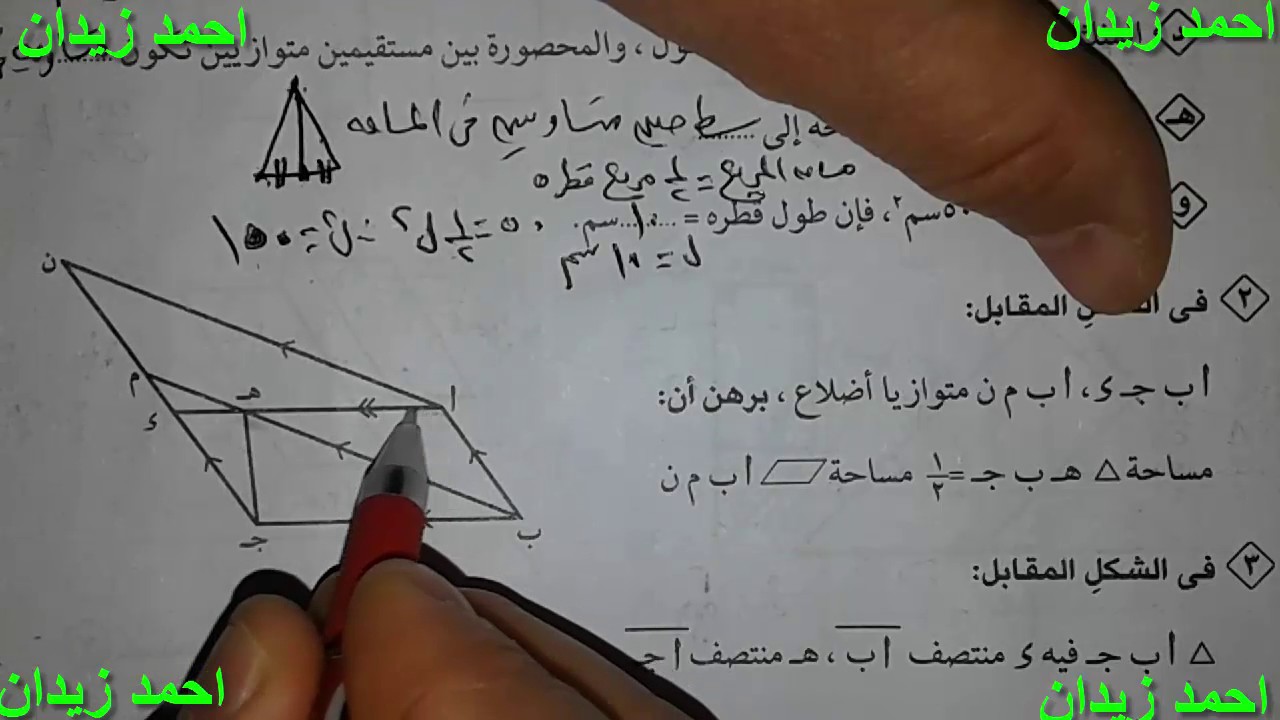 احمد زيدان
احمد زيدان
د
ول ، والمحصورة بين مستقيمين متوازيين تكون
هـ
إلى سطحين متساويين في المساحة
مساحة المربع = ١/٢ مربع قطره
و
٥٠ سم٢، فإن طول قطره = ١٠ سم.
٥٠ = ١/٢ ل٢ ∴ ل٢ = ١٠٠
ل = ١٠ سم
٢ فى الشكلِ المقابل:
أ ب جـ ء، أ ب م ن متوازيا أضلاع ، برهن أن:
مساحة △ هـ ب جـ = ١/٢ مساحة ▱ أ ب م ن
ن
م
هـ
أ
ء
جـ
ب
٣ فى الشكلِ المقابل:
△ أ ب جـ فيه ء منتصف أ ب ، هـ منتصف أ جـ
احمد زيدان
احمد زيدان